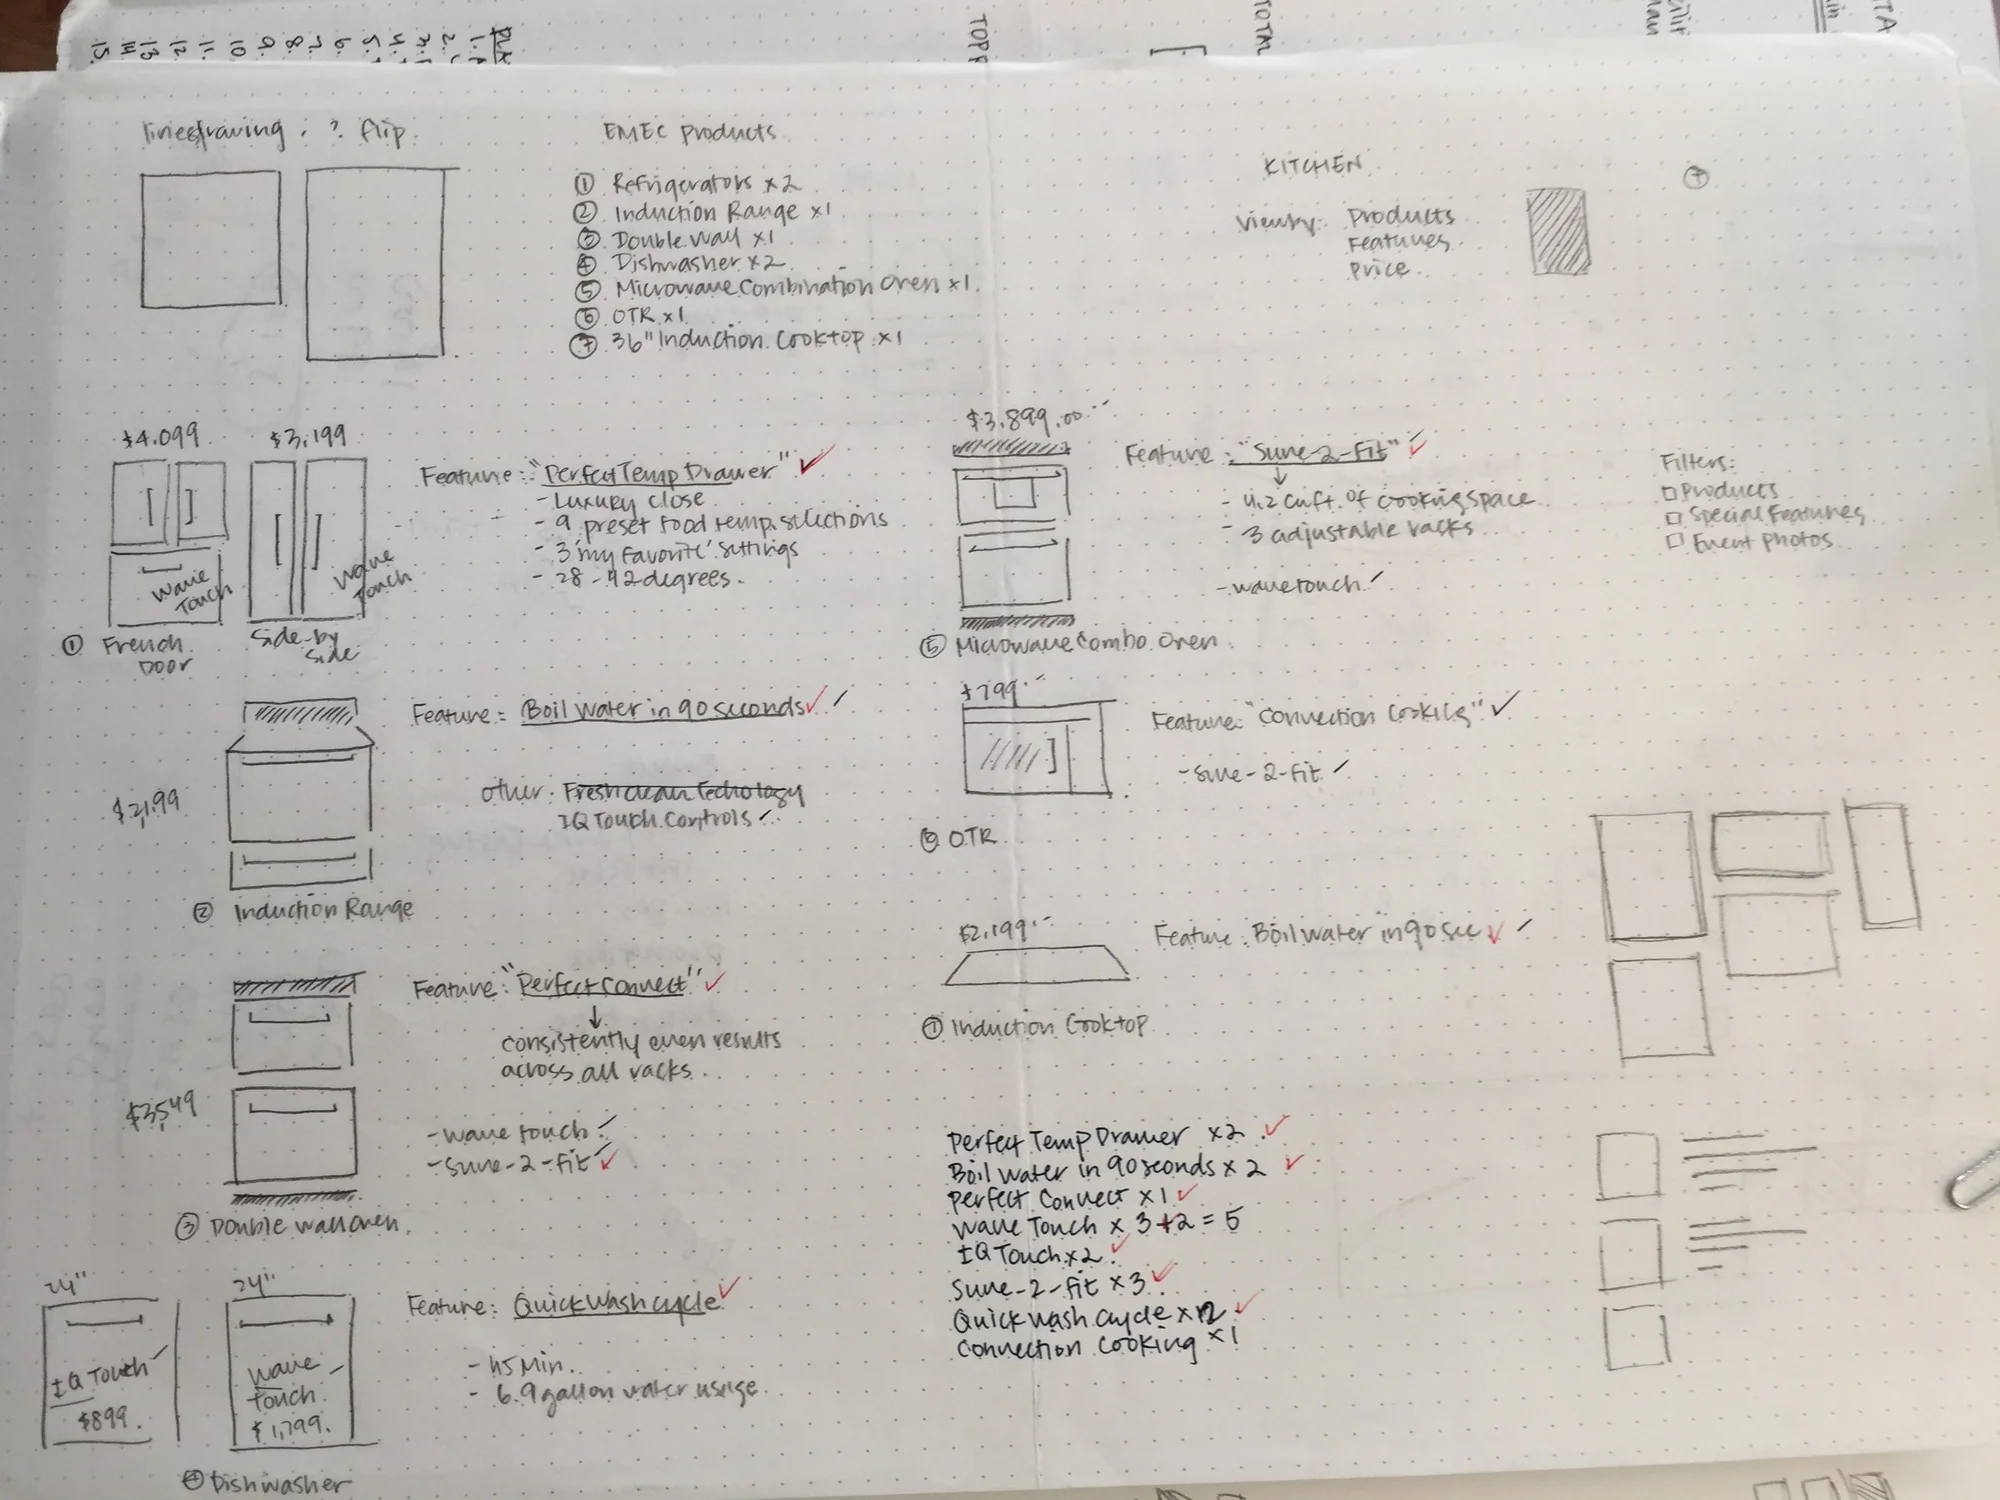 linedrawing . ? flip
EMEC Products
① Refrigerators x2
② Induction Range x1
③ Double Wall x1
④ Dishwasher x2
⑤ Microwave Combination Oven x1
⑥ OTR x1
⑦ 36" Induction Cooktop x1
KITCHEN
View by: Products
Features
Price
$4,099
$3,199
Wave Touch
Wave Touch
① French Door
Side-by Side
Feature: "Perfect Temp Drawer" ✓
- Luxury close
- 9 preset food temp. selections
- 3 'my favorite' settings
- 28-42 degrees.
Feature: Boil Water in 90 seconds ✓ ✓
other: Fresh clean Techology
IQ Touch Controls ✓
$2,199
② Induction Range
Feature: "Perfect Connect" ✓
↓
consistently even results
across all racks.
$3,549
- wave touch ✓
- Sure-2-fit ✓
③ Double wall oven
24"
IQ Touch
$899.
24"
Wave
touch
$1,799.
④ Dishwasher
Feature: Quick Wash cycle ✓
- 45 Min.
- 6.9 gallon water usage
$3,899.00
Feature: "Sure-2-Fit" ✓
↓
- 4.2 cu ft. of cooking space
- 3 adjustable racks
- wave touch ✓
⑤ Microwave Combo Oven
$799
Feature: "Connection Cooking" ✓
- Sure-2-fit ✓
⑥ OTR
$2,199
Feature: Boil water in 90 sec ✓ ✓
⑦ Induction Cooktop
Perfect Temp Drawer x2 ✓
Boil Water in 90 seconds x 2 ✓
Perfect Connect x1 ✓
Wave Touch x 3+2 = 5
IQ Touch x2 ✓
Sure-2-Fit x3 ✓
Quick Wash Cycle x2 ✓
Connection Cooking x1
Filters:
□ Products
□ Special Features
□ Event Photos
TOTAL